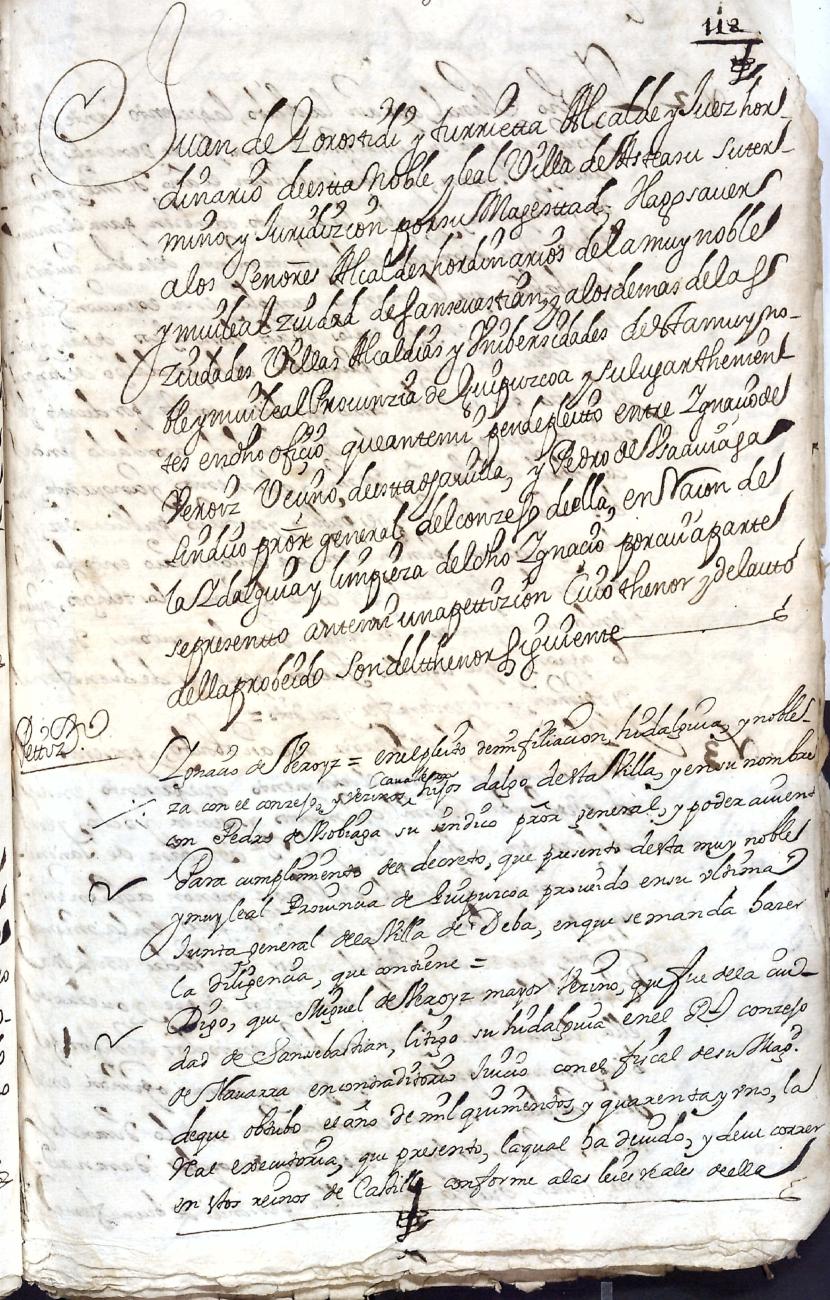 118
Juan de Lorostidi y Iurrietta Alcalde y Juez hor-
dinario de estta Noble y leal Villa de Asteasu su ter-
mino y Juridizion por su Magesttad; Hago saver
a los Señores Alcaldes hordinarios de la muy noble
y mui leal ziudad de San sevastian, y a los demas de las
ziudades Villas Alcaldias y Unibersidades de esta muy no-
ble y mui leal Provinzia de Guipuzcoa y sus lugarthenien-
tes en dho ofizio que ante mi pende pleitto entre Ygnacio de
Veroiz Vecino, de estta dha villa, y Pedro de
Sindico pror general del conzejo de ella, en Razon de
la Ydalguia y limpieza del dho Ygnacio por cuia parte
se presentto ante mi una pettizion Cuio thenor y del auto
a ella probeido son del thenor Siguiente
Pettizon
Ygnacio de Veroyz = en el pleito de mi filiacion, hidalguia, y noble-
za con el conzejo, y vezinos cavalleros hijos dalgo, de esta Villa, y en su nombre
con Pedro de su sindico pror general, y poder avient
Para cumplimento del decreto, que presento de esta muy noble
y muy leal Provincia de Guipuzcoa proveido en su ultima
Junta general de la Villa de Deba, en que se manda hazer
la diligencia, que contiene =
Digo, que Miguel de Veroyz mayor vezino, que fue de la ciu-
dad de San sebastian, litigo su hidalguia en el Rl conzejo
de Navarra en contraditorio Juicio con el fiscal de su Magd.
de que obtubo el año de mil quinientos, y quarenta y uno, la
Real executoria, que presento, la qual ha devido, y deve correr
en estos reinos de Castilla conforme a las leies reales de ella